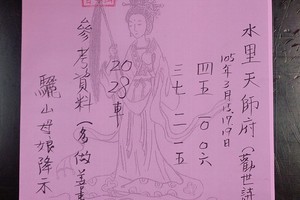 水里天師府(勸世詩
105年3月15.17.19日
四五 一00六
三七 二一五
20 28車
參考資料(多做善事
驪山母娘降示